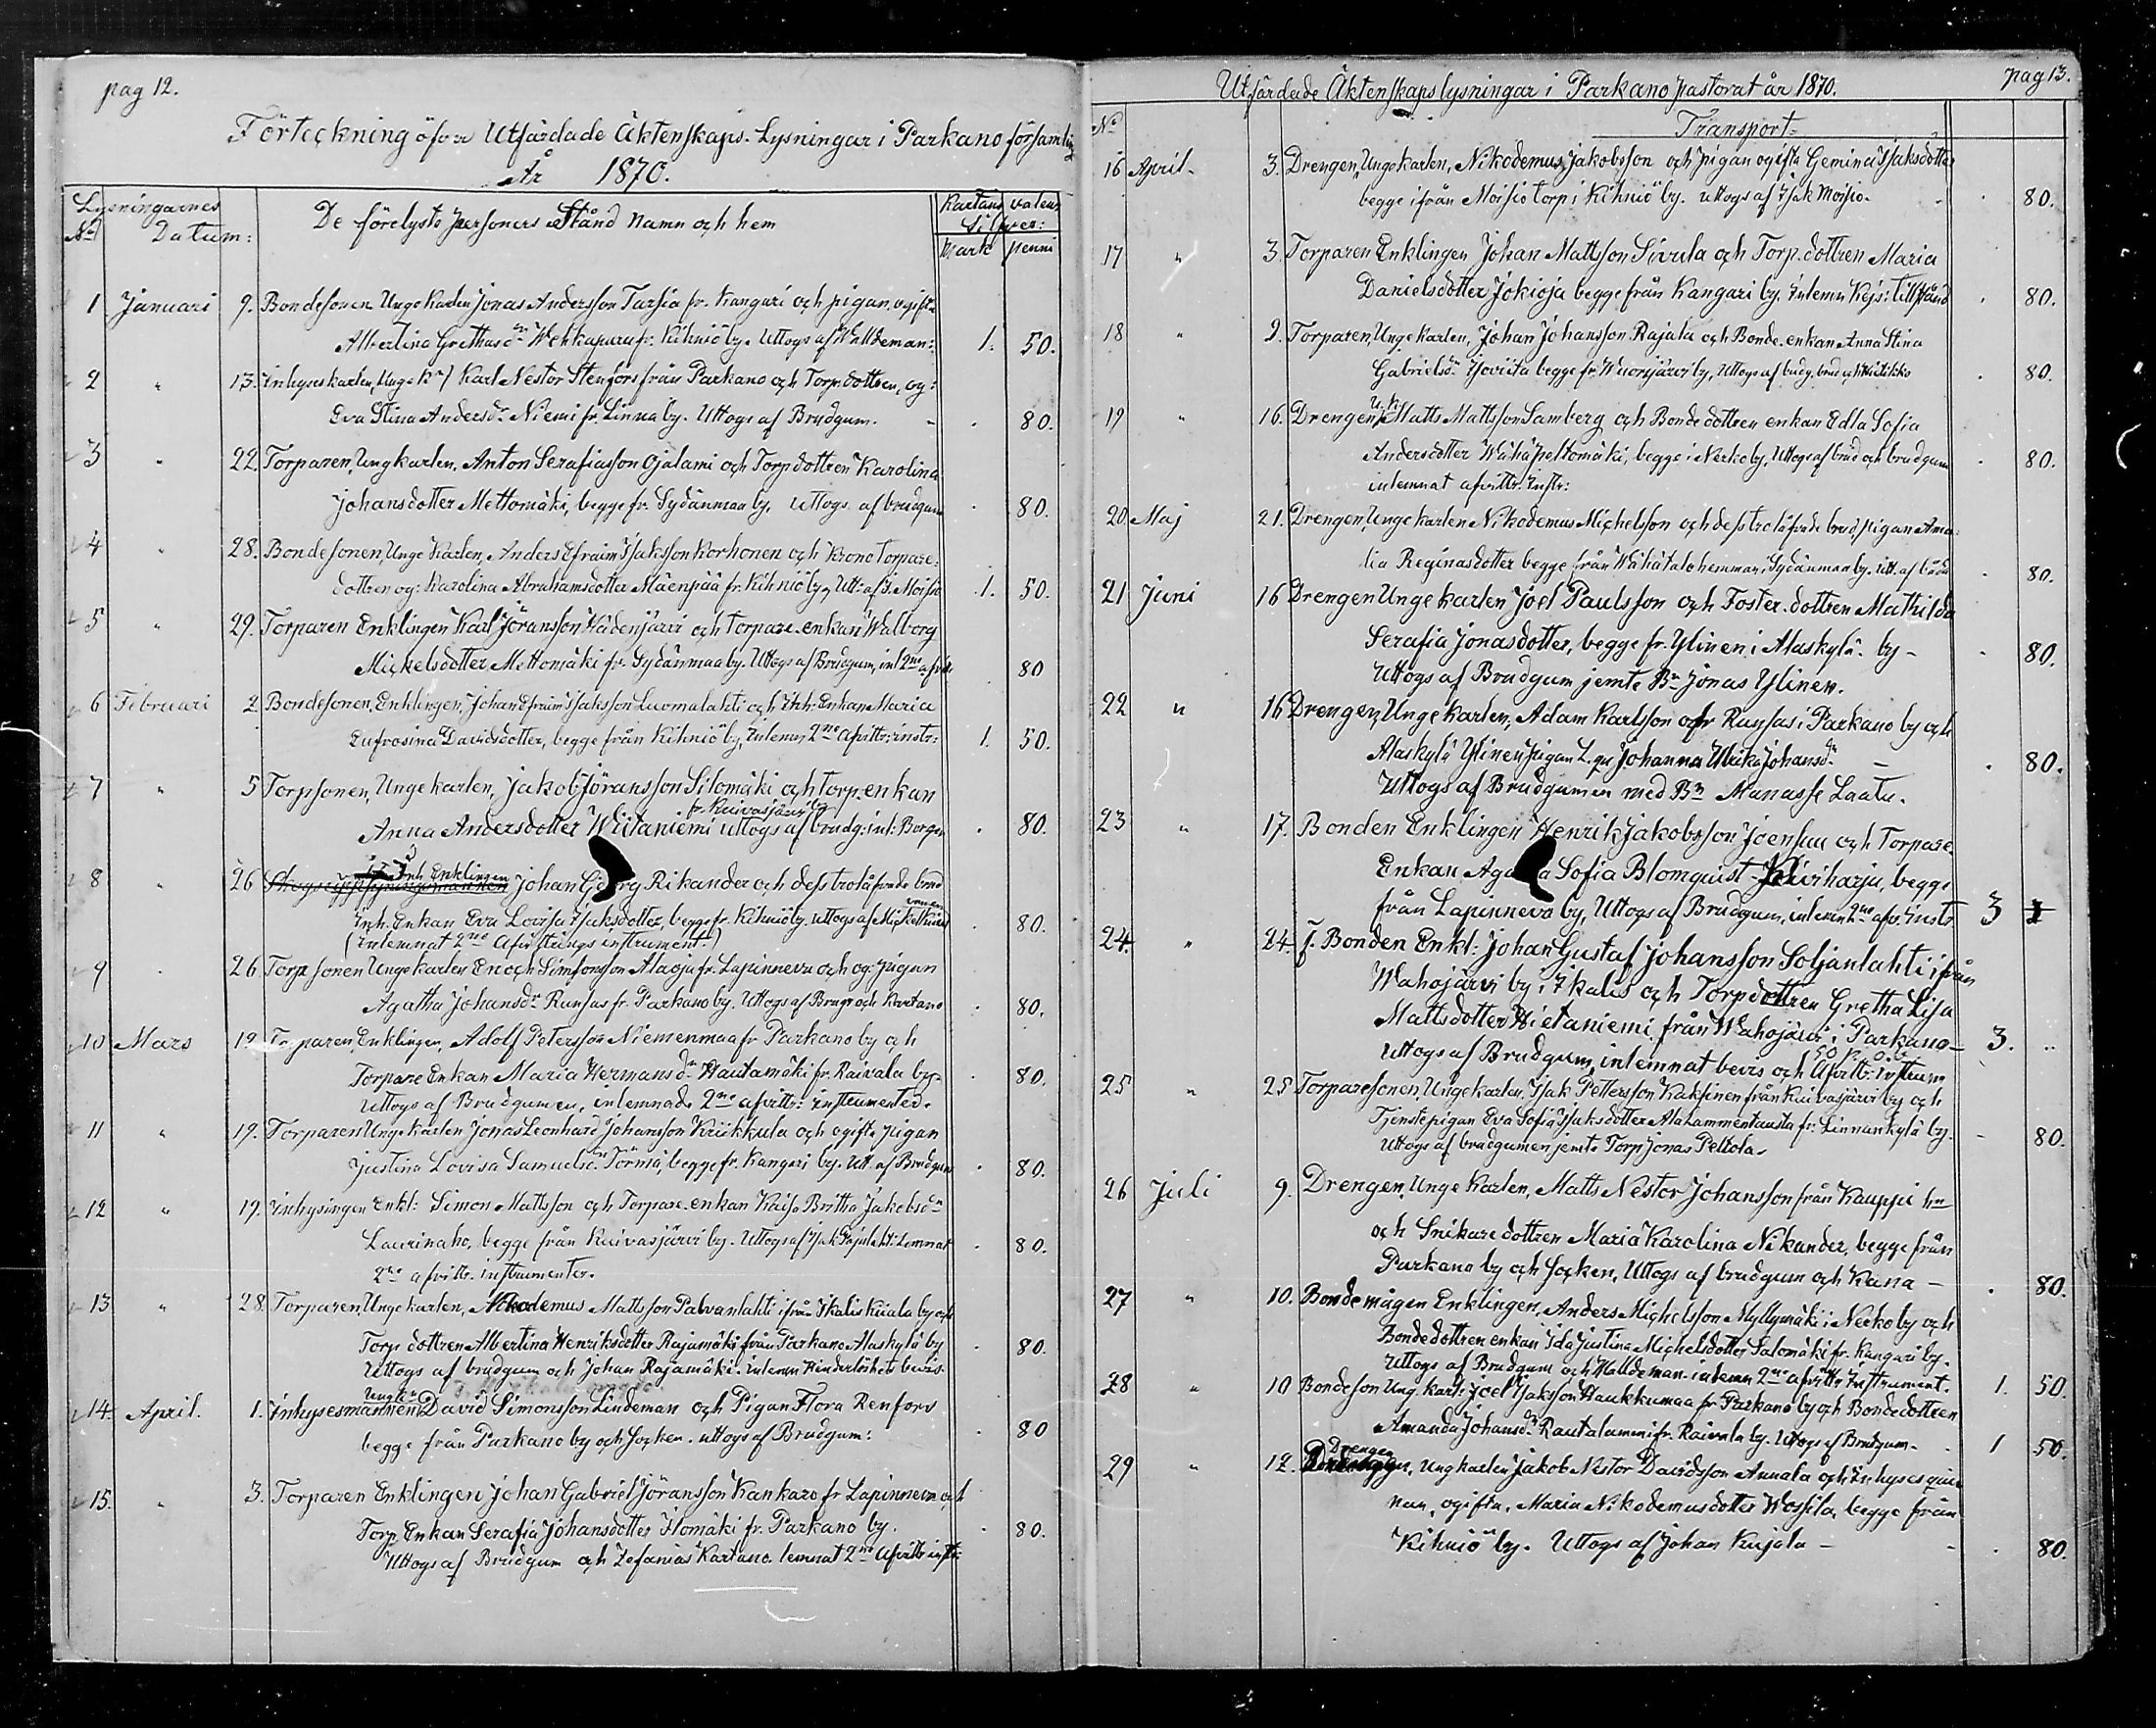 pag 12.
Förteckning öfver Utfärdade Äktenskaps-Lysningar i Parkano församling
År 1870.
Lysningarnes
No Datum:
De förelysta personers Stånd Namn och hem
Silfver:
Mark penni
1 Januari 9. Bondesonen Unge Karlen Jonas Andersson Tarsia fr. Kangari och pigan, ogifta
Albertina Grethasdr Wehkapuru fr. Kihniö by. Uttogs af Walldeman: 1. 50.
2 " 13. Inhyseskarlen, Unge kn Karl Nestor Stenfors från Parkano och Torpdottren, og:
Eva Stina Andersdr Niemi fr. Linna by. Uttogs af Brudgum. 80.
3 " 22. Torparen, Ungkarlen, Anton Serafiasson Ojalami och Torpdottren Karolina
Johansdotter Mettomäki, begge fr. Sydänmaa by. uttogs af brudgum 80.
4 " 28. Bondesonen, Unge Karlen, Anders Efraim Isaksson Korhonen och Torpare-
dottren og: Karolina Abrahamsdotter Mäenpää fr. Kihniö by, Utt: af I. Moisio 1. 50.
5 " 29. Torparen Enklingen Karl Jöransson Hädenjärvi och torpare-enkan Walborg
Mickelsdotter Mettomäki fr. Sydänmaa by. Uttogs af Brudgum, inl 2ne afvittr 80
6 Februari 2 Bondesonen, Enklingen, Johan Efraim Isaksson Luomalahti och Enkan Maria
Eufrosina Davidsdotter, begge från Kihniö by, Inlemn 2ne afvittr: instr: 1. 50.
7 " 5 Torpsonen, Unge karlen, Jakob Jöransson Silomäki och torp. enkan
fr. Kuivasjärvi by
Anna Andersdotter Wiitaniemi uttogs af brudg: inl: Borgen 80.
8 " 26 Inh Enklingen Johan Georg Rikander och dess trolofvade brud
Inh. Enkan Eva Lovisa Isaksdotter, begge fr. Kihniö by. uttogs af Mickel 80.
(Inlemnat 2ne Afvittrings instrument)
9 26 Torpsonen Unge karlen Enoch Simonsson Alaoja fr. Lapinneva och og: pigan
Agatha Johansdr Runsas fr. Parkano by. Uttogs af Brugr och Kartano 80.
10 Mars 19 Torparen, Enklingen, Adolf Petersson Niemenmaa fr Parkano by och
Torpare Enkan Maria Hermansdr Hautamäki fr. Raivala by. 80.
Uttogs af Brudgumen, inlemnade 2ne afvittr: instrumenter.
11 " 19. Torparen Unge Karlen Jonas Leonhard Johansson Kriikkula och ogifta pigan
Justina Lovisa Samuelsdr Törmä, begge fr. Kangari by. Utt. af Brudgum 80.
12 " 19. Inhysingen Enkl: Simon Mattsson och Torpare-enkan Kaisa Britha Jakobsdr
Laurinaho, begge från Kuivasjärvi by. Uttogs af Isak Pajulahti: Lemnat 80.
2ne afvittr. instrumenter.
13 " 28. Torparen, Unge karlen, Nikodemus Mattsson Palvanlahti ifrån Ikalis Kiiala by och
Torp dottren Albertina Henriksdotter Rajamäki från Parkano Alaskylä by 80.
Uttogs af brudgum och Johan Rajamäki. inlemn hinderlöshets bevis.
14. April. 1. Inhysesmannen David Simonsson Lindeman och Pigan Flora Renfors
begge från Parkano by och Socken. uttogs af Brudgum: 80
15. " 3. Torparen Enklingen Johan Gabriel Jöransson Kankaro fr Lapinneva och
Torp. Enkan Serafia Johansdotter Ilomäki fr. Parkano by. 80.
Uttogs af Brudgum och Zefanias Kartano lemnat 2ne Afvittr instr:
Utfärdade Äktenskapslysningar i Parkano pastorat år 1870. pag 13.
No
Transport=
16 April 3. Drengen, Unge karlen, Nikodemus Jakobsson och pigan ogifta Gemina Isaksdotter
begge ifrån Moisio torp i Kihniö by. uttogs af Isak Moisio. 80.
17 " 3. Torparen Enklingen Johan Mattsson Sivula och Torp. dottren Maria
Danielsdotter Jokioja begge från Kangari by. Inlemn Kejs: Tillstånd 80.
18 " 9. Torparen, Unge karlen, Johan Johansson Rajala och Bonde-enkan Anna Stina
Gabrielsdr begge fr. Wuorijärvi by, Uttogs af brudg. brud och 80.
19 " 16. Drengen U.k. Matts Mattsson Samberg och Bondedottren enkan Edla Sofia
Andersdotter Wähäpeltomäki, begge i Nerko by, Uttogs af brud och brudgum 80.
inlemnat afvittr. Instr:
20 Maj 21. Drengen, Unge karlen Nikodemus Michelsson och dess trolofvade brud, pigan Ama-
lia Reginasdotter begge från Wähätalo hemman i Sydänmaa by. utt. af båda 80.
21 Juni 16 Drengen Unge karlen Joel Paulsson och Foster-dottren Mathilda
Serafia Jonasdotter, begge fr. Ylinen i Alaskylä by - 80.
Uttogs af Brudgum jemte Bn Jonas Ylinen.
22 " 16 Drengen, Unge karlen, Adam Karlsson fr Runsas i Parkano by och
Alaskylä Ylinen pigan L.qu Johanna Ulrika Johansdr 80.
Uttogs af Brudgumen med Bn Manasse Laatu.
23 " 17. Bonden Enklingen Henrik Jakobsson Joensuu och Torpare-
Enkan Agatha Sofia Blomquist Kiviharju, begge
från Lapinneva by, Uttogs af Brudgum, inlemn 2ne afv. Instr 3
24. " 24. f. Bonden Enkl: Johan Gustaf Johansson Soljanlahti ifrån
Wahojärvi by i Ikalis och Torpdottren Gretha Lisa
Mattsdotter Hietaniemi från Wahojärvi i Parkano- 3. ..
Uttogs af Brudgum, inlemnat bevis och Afvittr: instrum
25 " 25 Torparesonen, Unge karlen, Isak Pettersson Kaksinen från Kuivasjärvi by och
Tjenstepigan Eva Sofia Isaksdotter Alahammentausta fr. Linnankylä by. 80.
Uttogs af brudgumen jemte Torp Jonas Peltola.
26 Juli 9. Drengen, Unge Karlen, Matts Nestor Johansson från Kauppi hn
och Snikare dottren Maria Karolina Nikander, begge från
Parkano by och Socken, Uttogs af brudgum och Kana - 80.
27 " 10. Bondemågen Enklingen, Anders Michelsson Myllymäki i Nerko by och
Bondedottren enkan Ida Justina Michelsdotter Salomäki fr. Kangari by.
Uttogs af Brudgum och Walldeman. inlemn 2ne afvittr Instrument. 1. 50.
28 " 10 Bondeson Ung. Karl: Joel Isaksson Haukkumaa fr Parkano by och Bondedottren
Amanda Johansdr Rautalammi fr. Raivala by. Uttogs af Brudgum. 1 50.
29 " 12. Drengen, Ung karlen Jakob Nestor Davidsson Annala och Inhyses qvin-
nan, ogifta, Maria Nikodemusdotter Wossila, begge från
Kihniö by. Uttogs af Johan Kujala - 80.